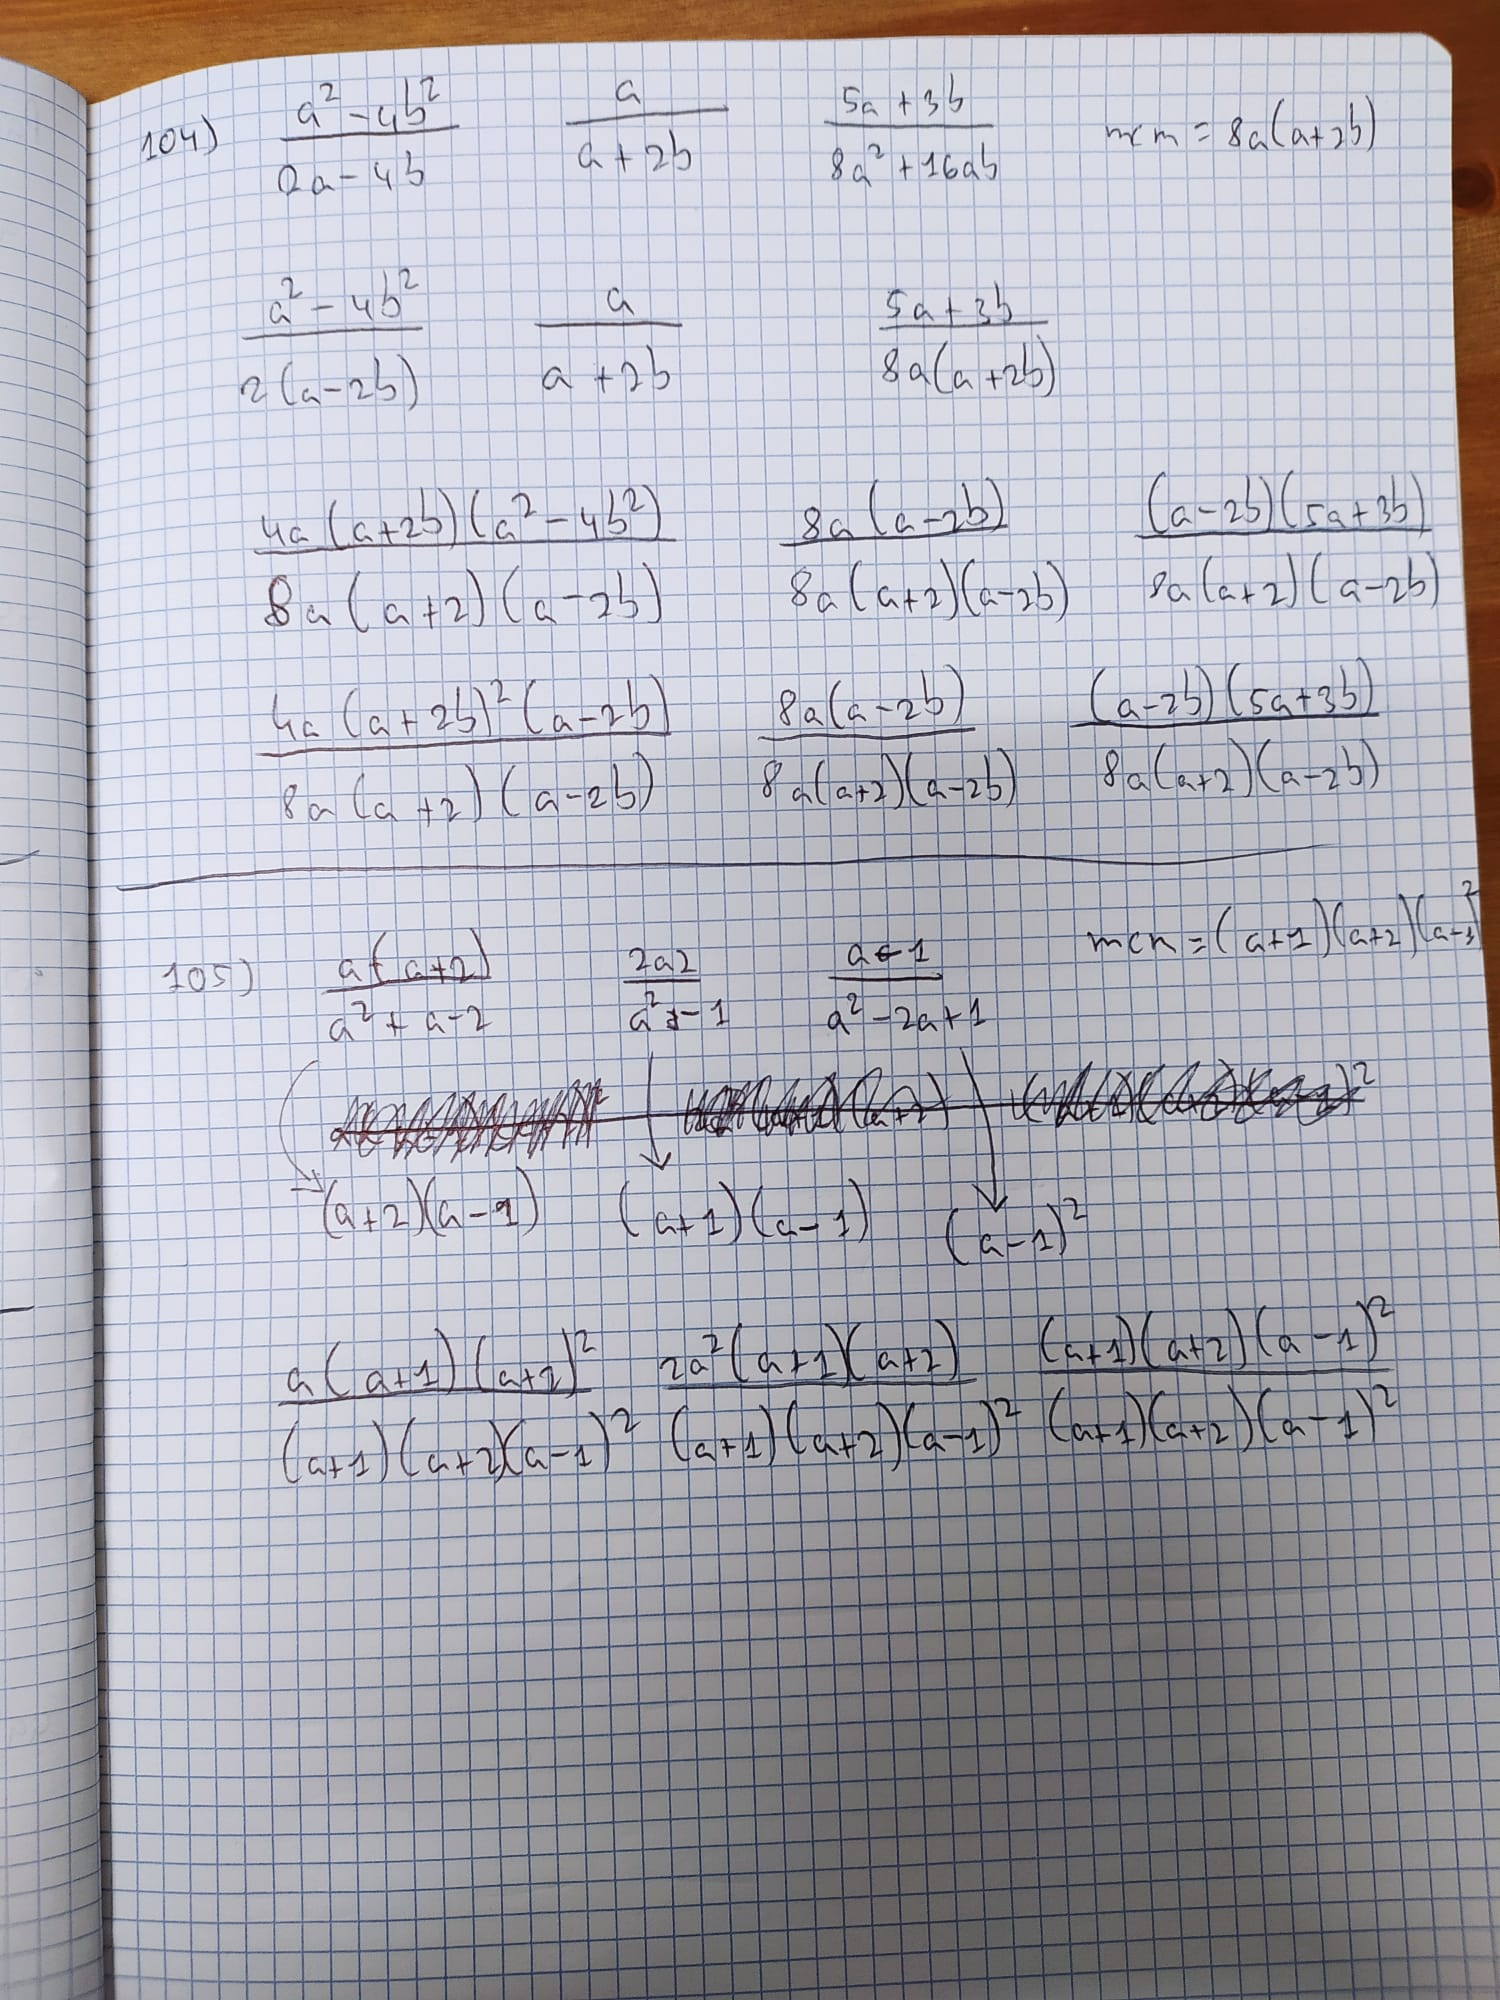 104) (a² - 4b²)/(2a - 4b) a/(a + 2b) (5a + 3b)/(8a² + 16ab) mcm = 8a(a+2b)
(a² - 4b²)/(2(a-2b)) a/(a + 2b) (5a + 3b)/(8a(a+2b))
(4a(a+2b)(a² - 4b²))/(8a(a+2)(a-2b)) (8a(a-2b))/(8a(a+2)(a-2b)) ((a-2b)(5a+3b))/(8a(a+2)(a-2b))
(4a(a+2b)²(a-2b))/(8a(a+2)(a-2b)) (8a(a-2b))/(8a(a+2)(a-2b)) ((a-2b)(5a+3b))/(8a(a+2)(a-2b))
105) (a(a+2))/(a² + a - 2) 2a2/(a² - 1) (a-1)/(a² - 2a + 1) mcm = (a+1)(a+2)(a-1)²
(a+2)(a-1) (a+1)(a-1) (a-1)²
(a(a+1)(a+2)²)/((a+1)(a+2)(a-1)²) (2a²(a+1)(a+2))/((a+1)(a+2)(a-1)²) ((a+1)(a+2)(a-1)²)/((a+1)(a+2)(a-1)²)